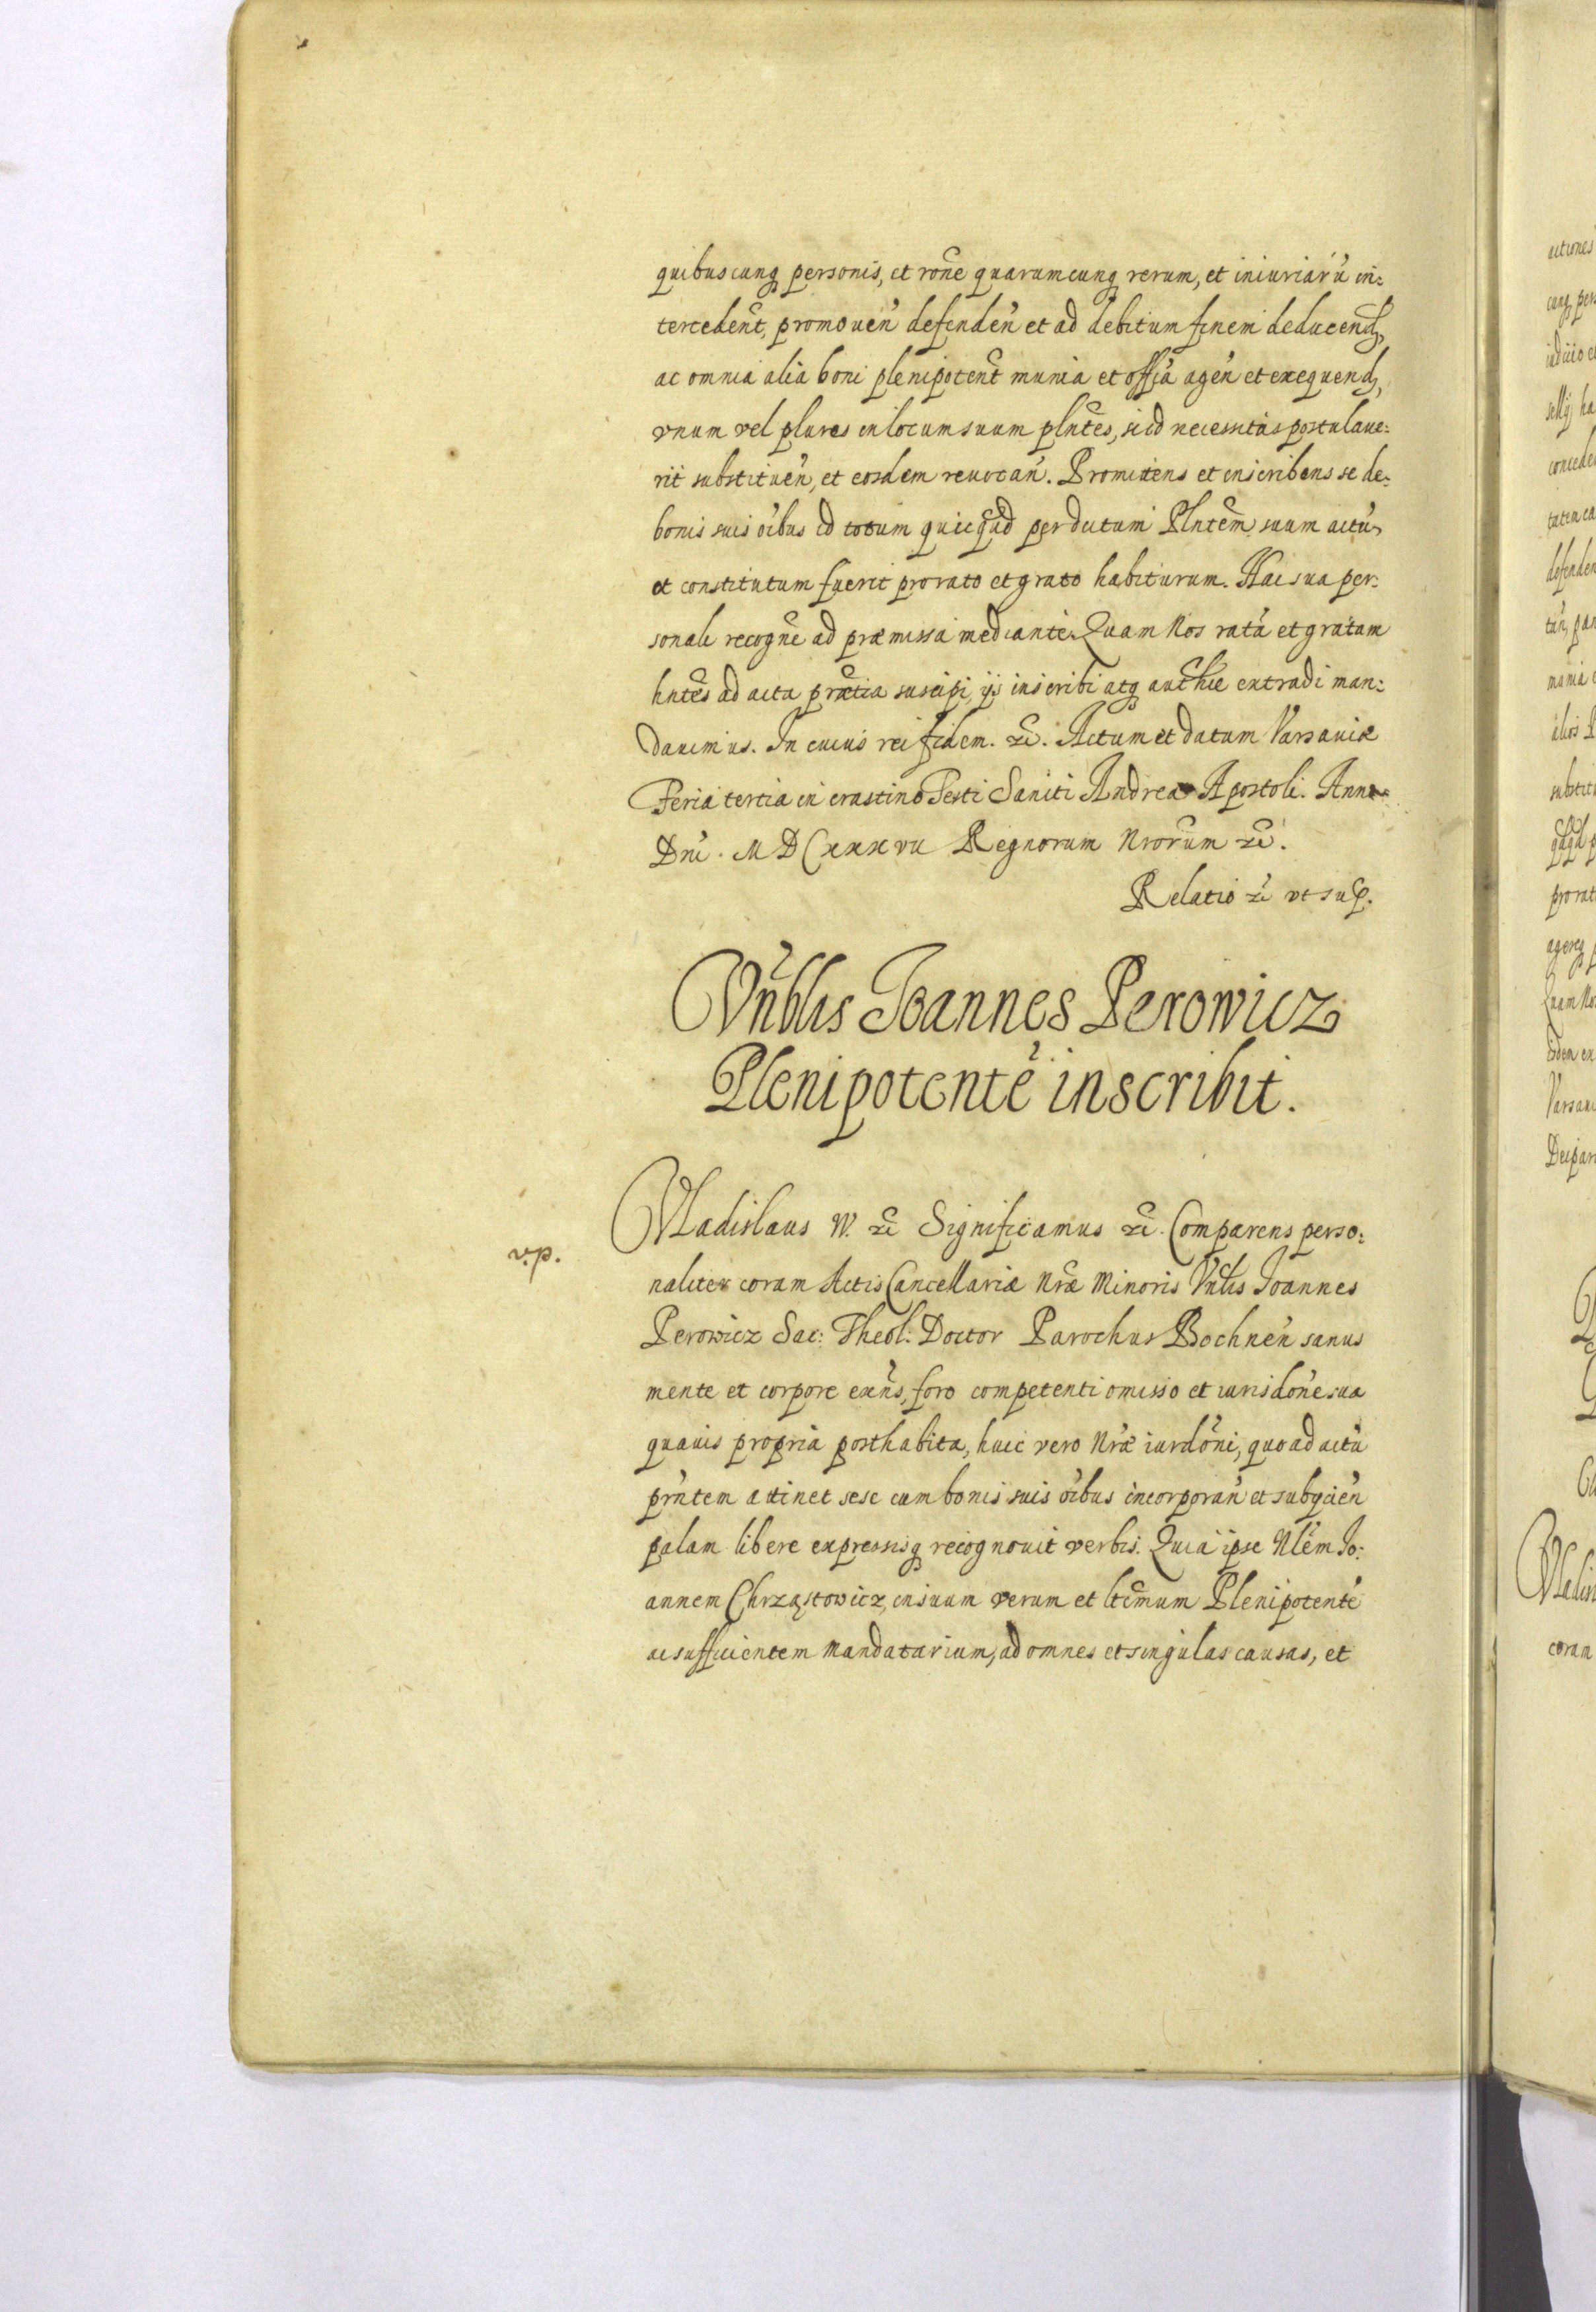 quibuscunq personis, et rone quarumcunq rerum, et iniuriarũ in:
tercedent, promouen defenden et ad debitum finem deducend,
ac omnia alia boni plenipotent munia et offia agen et exequend,
vnum vel plures in locum suum plntes, si id necessitas postulaue:
rit substituen, et eosdem reuocan. Promittens et inscribens se de
bonis suis oibus id totum quicqud per dictum Plntem suum actũ
et constitutum fuerit pro rato et grato habiturum. Hac sua per:
sonali recogne ad præmissa mediante. Quam Nos ratã et gratam
hntes ad acta prætia suscipi, ijs inscribi atq authce extradi man:
dauimus. In cuius rei fidem. etc. Actum et datum Varsauiæ
Feria tertia in crastino Festi Sancti Andreæ Apostoli. Anno
Dni. MDCxxxvii Regnorum Nrorum etc.
Relatio etc vt sup.
Vnblis Joannes Perowicz
Plenipotente inscribit.
Vladislaus IV. etc Significamus etc. Comparens perso:
v.p.
naliter coram Actis Cancellariæ Nræ Minoris Vnlis Joannes
Perowicz Sac: Theol: Doctor Parochus Bochnen sanus
mente et corpore exns, foro competenti omisso et iurisdone sua
quauis propria posthabita, huic vero Nræ iurdoni, quo ad actũ
prntem attinet sese cum bonis suis oibus incorporan et subijcien
palam libere expressisq recognouit verbis. Quia ipse Nlem Jo:
annem Chrząstowicz, in suum verum et ltimum Plenipotente
ac sufficientem Mandatarium, ad omnes et singulas causas, et